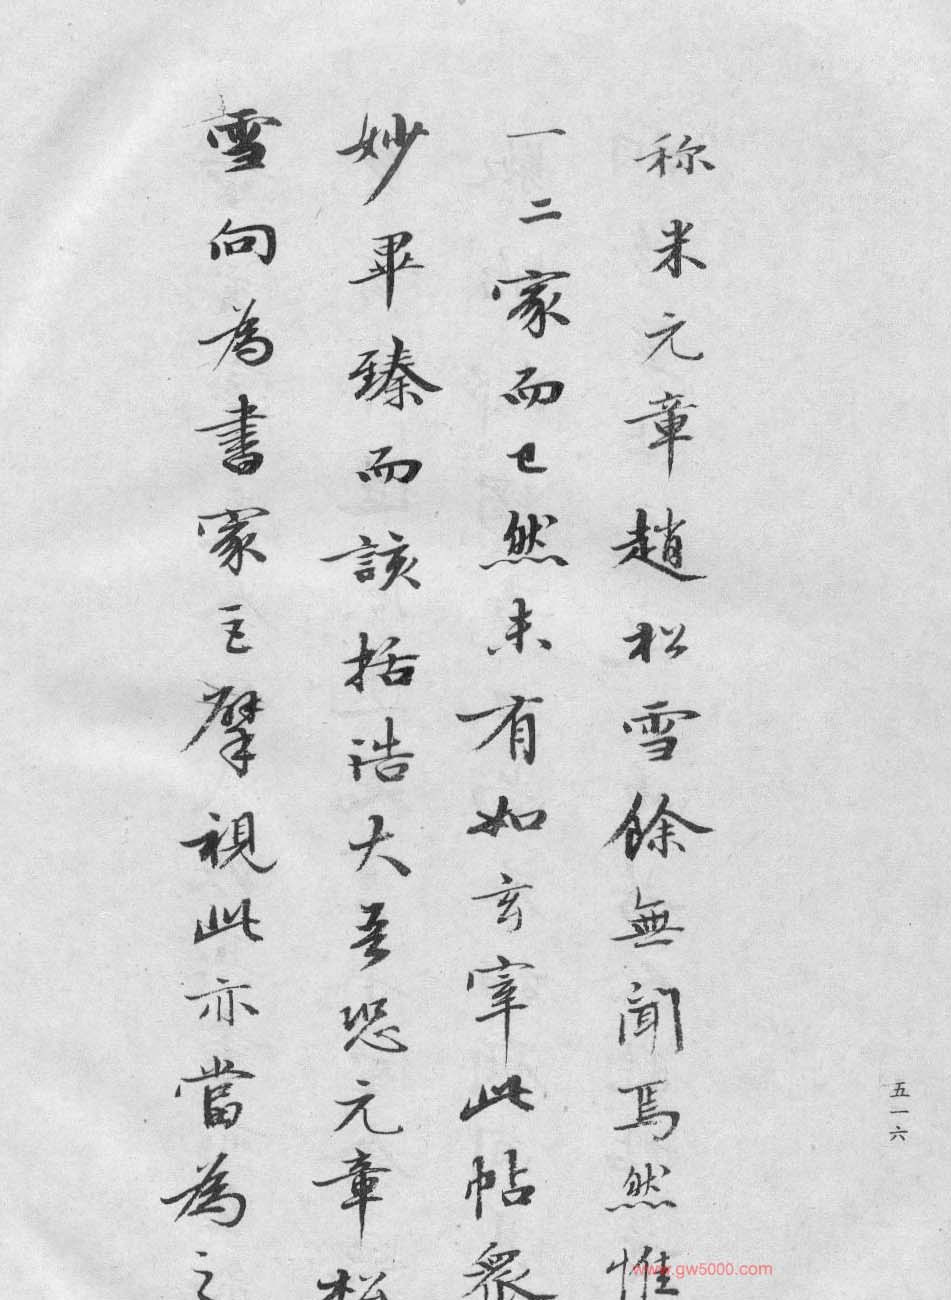 称米元章趙松雪餘無聞焉然惟
一二家而已然未有如玄宰此帖衆
妙畢臻而該括浩大吾恐元章松
雪向為書家巨擘視此亦當為之
五一六
www.gw5000.com